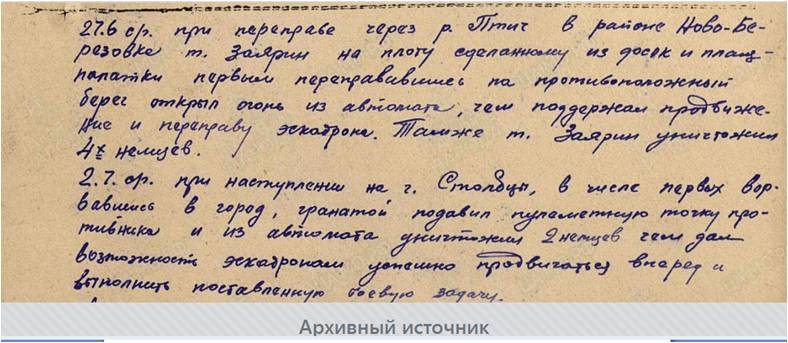 27.6 ср. при переправе через р. Птич в районе Ново-Бе-
резовке т. Заярин на плоту сделанному из досек и плащ-
палатки первым переправавшись на противоположный
берег открыл огонь из автомата, чем поддержал продвиже-
ние и переправу эскадрона. Тамже т. Заярин уничтожил
4х немцев.
2.7. ср. при наступлении на г. Столбцы, в числе первых вор-
вавшись в город, гранатой подавил пулеметную точку про-
тивника и из автомата уничтожил 2 немцев чем дал
возможность эскадронам успешно продвигаться вперед и
выполнить поставленную боевую задачу.
Архивный источник